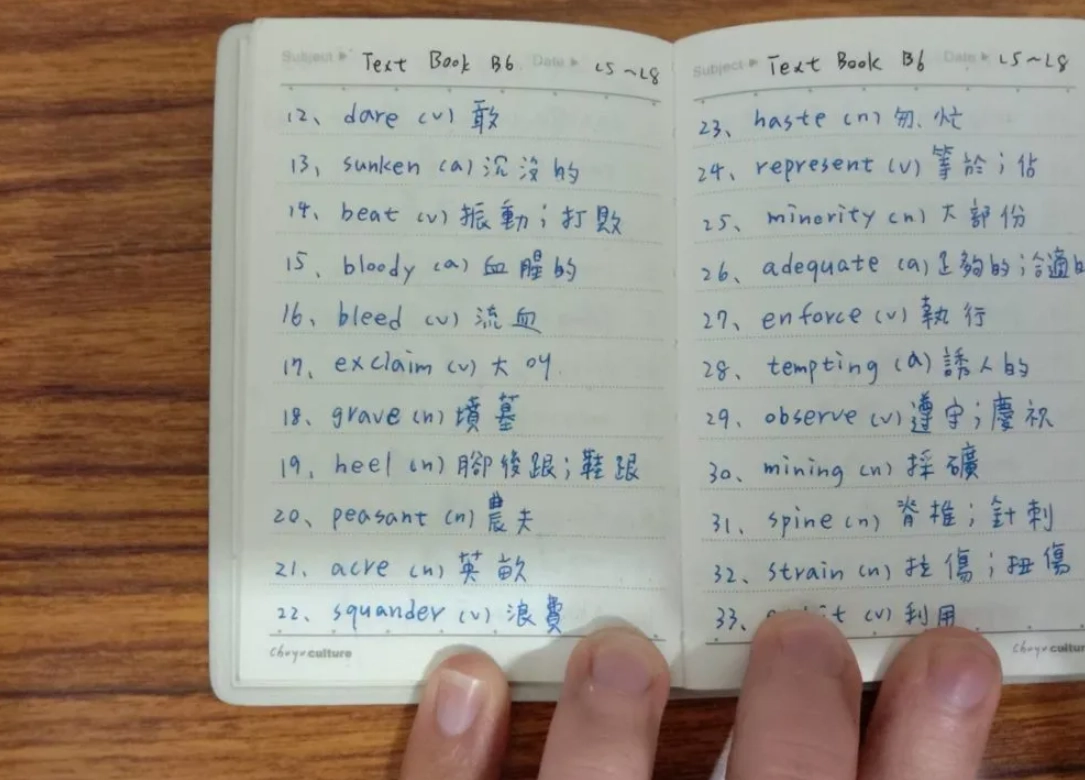 Subject ▶ Text Book B6 Date ▶ L5~L8
12、dare (v) 敢
13、sunken (a) 沉沒的
14、beat (v) 振動；打敗
15、bloody (a) 血腥的
16、bleed (v) 流血
17、exclaim (v) 大叫
18、grave (n) 墳墓
19、heel (n) 腳後跟；鞋跟
20、peasant (n) 農夫
21、acre (n) 英畝
22、squander (v) 浪費
culture
Subject ▶ Text Book B6 Date ▶ L5~L8
23、haste (n) 匆、忙
24、represent (v) 等於；佔
25、minority (n) 大部份
26、adequate (a) 足夠的；合適的
27、enforce (v) 執行
28、tempting (a) 誘人的
29、observe (v) 遵守；慶祝
30、mining (n) 採礦
31、spine (n) 脊椎；針刺
32、strain (n) 拉傷；扭傷
33、(v) 利用